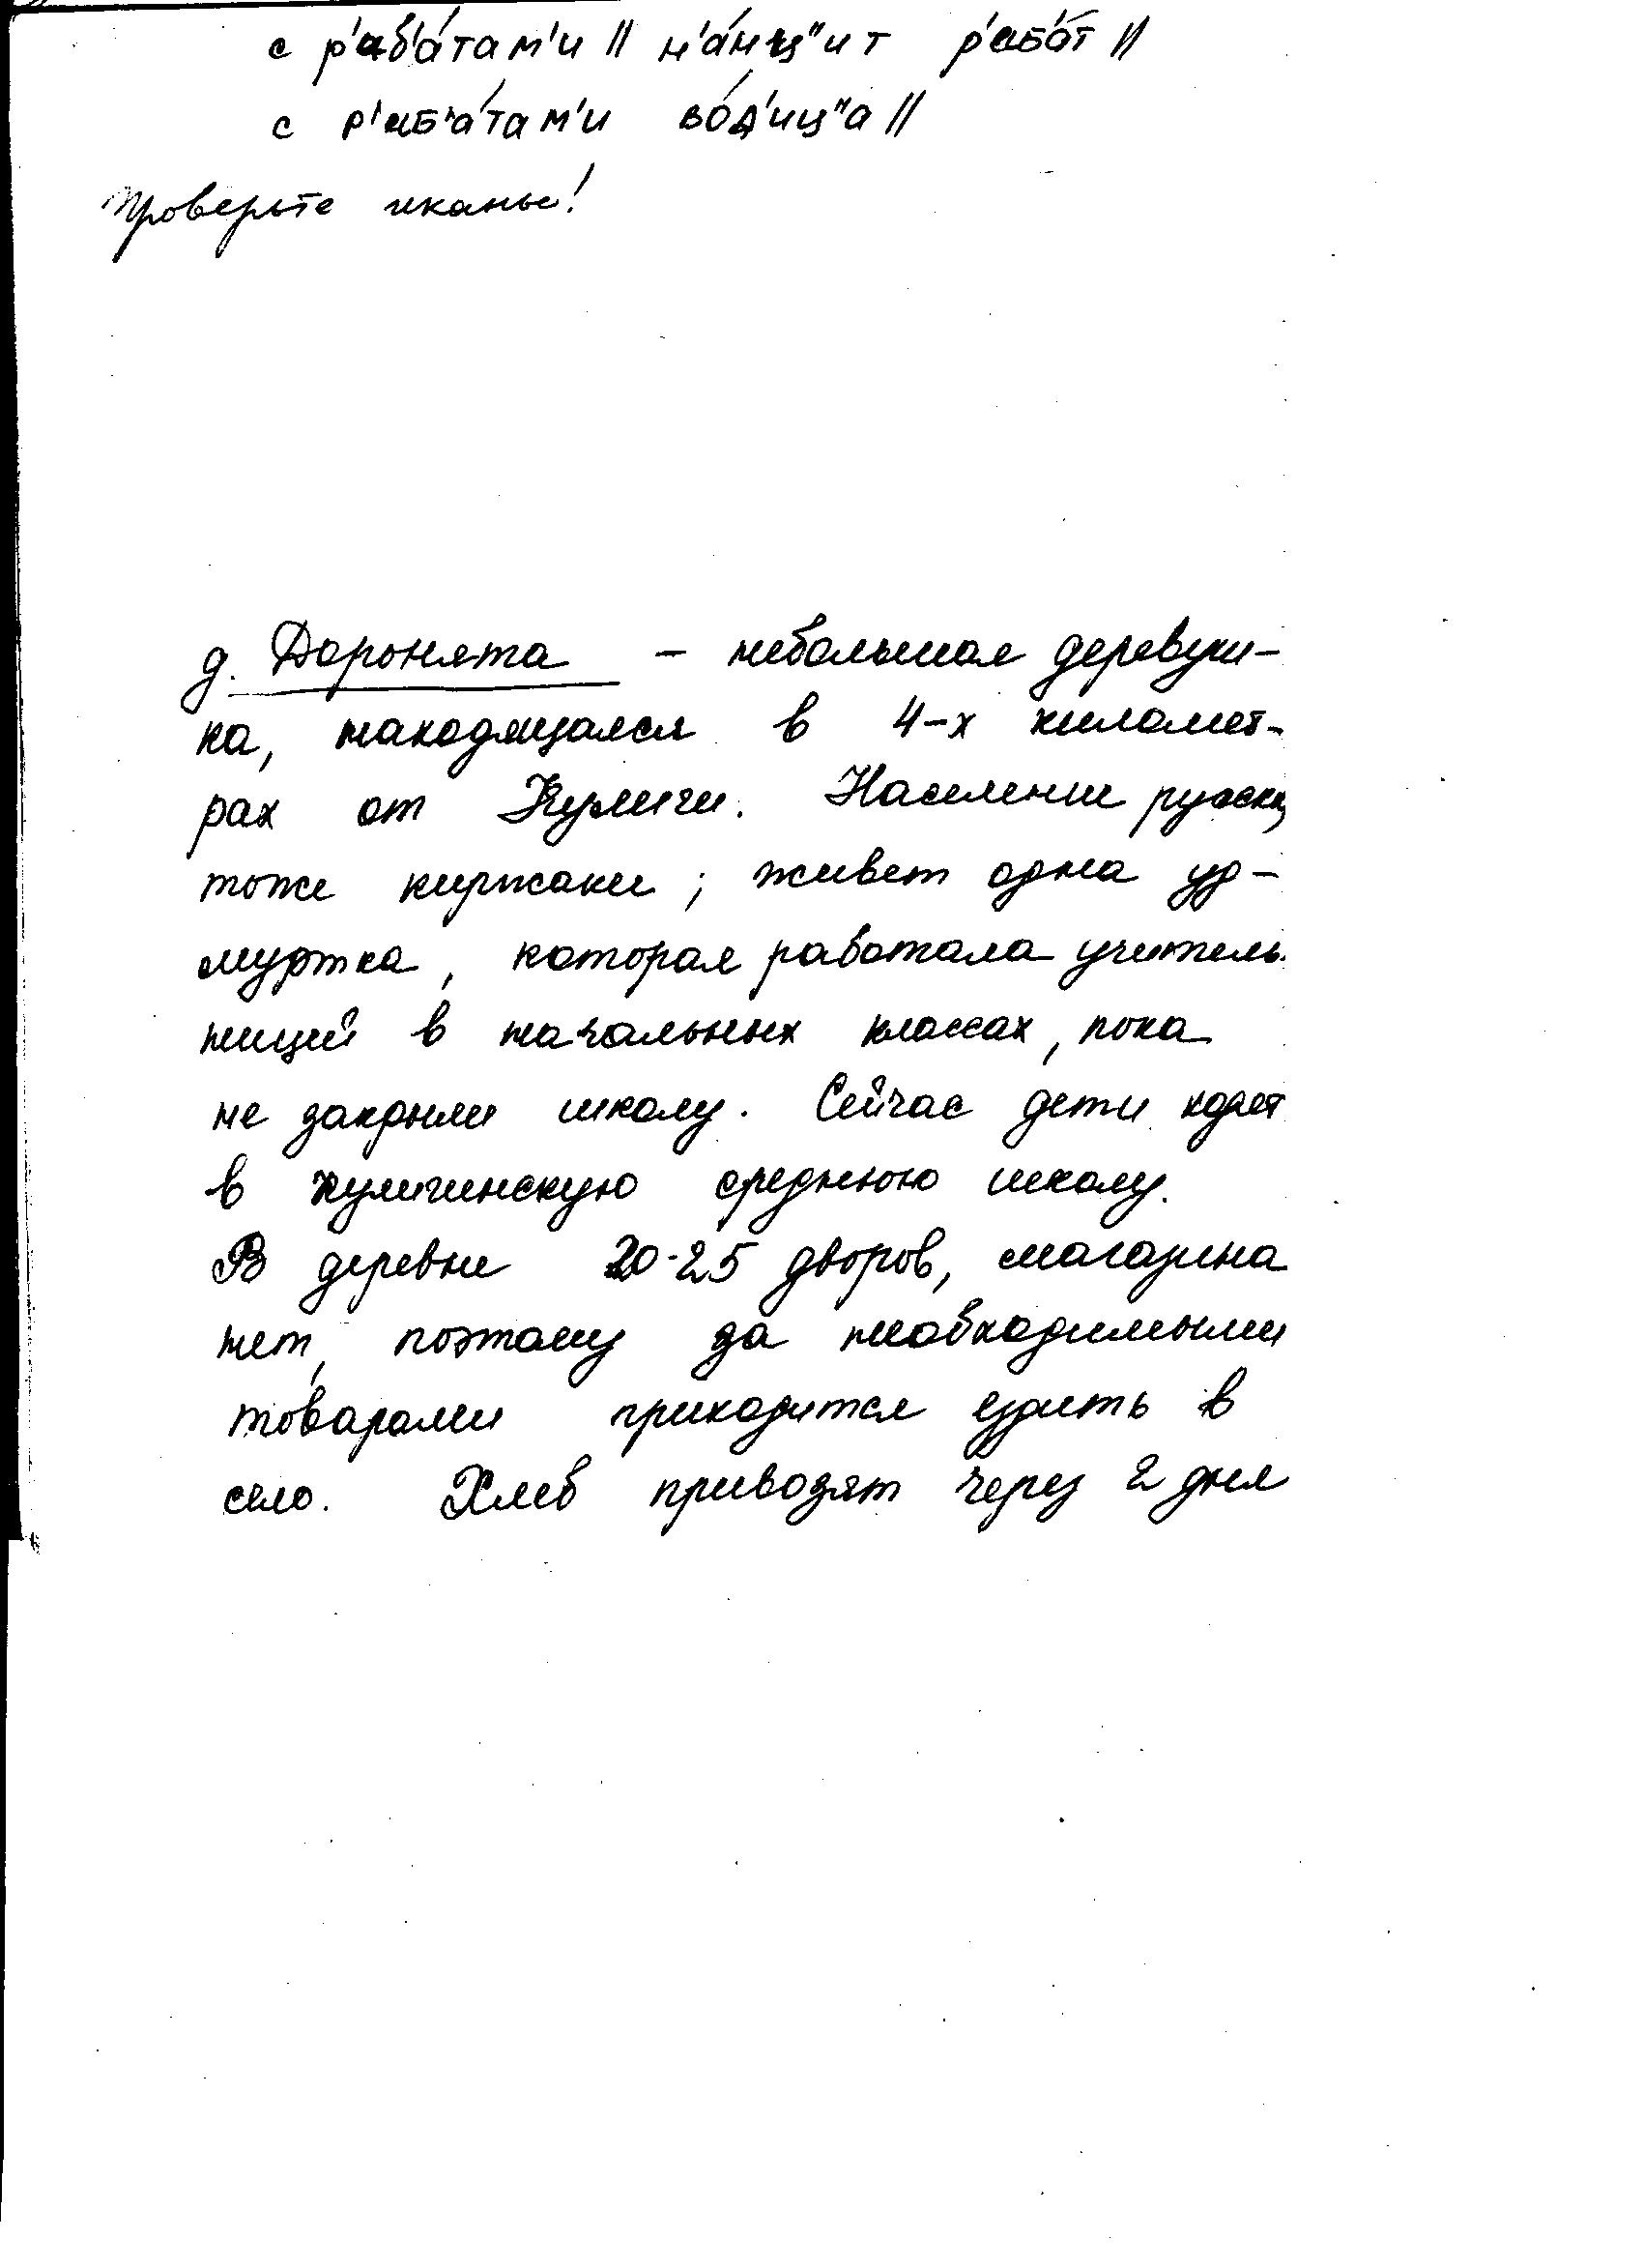 с р'аб'а́там'и || н'а́нц"ит р'аб'а́т ||
с р'аб'а́там'и во́д'иц"а ||
Проверьте иканье!
д. Доронята – небольшая деревуш-
ка, находящаяся в 4-х километ-
рах от Кулиги. Население русские,
тоже киржаки; живет одна уд-
муртка, которая работала учитель-
ницей в начальных классах, пока
не закрыли школу. Сейчас дети ходят
в кулигинскую среднюю школу.
В деревне 20-25 дворов, магазина
нет, поэтому за необходимыми
товарами приходится ездить в
село. Хлеб привозят через 2 дня